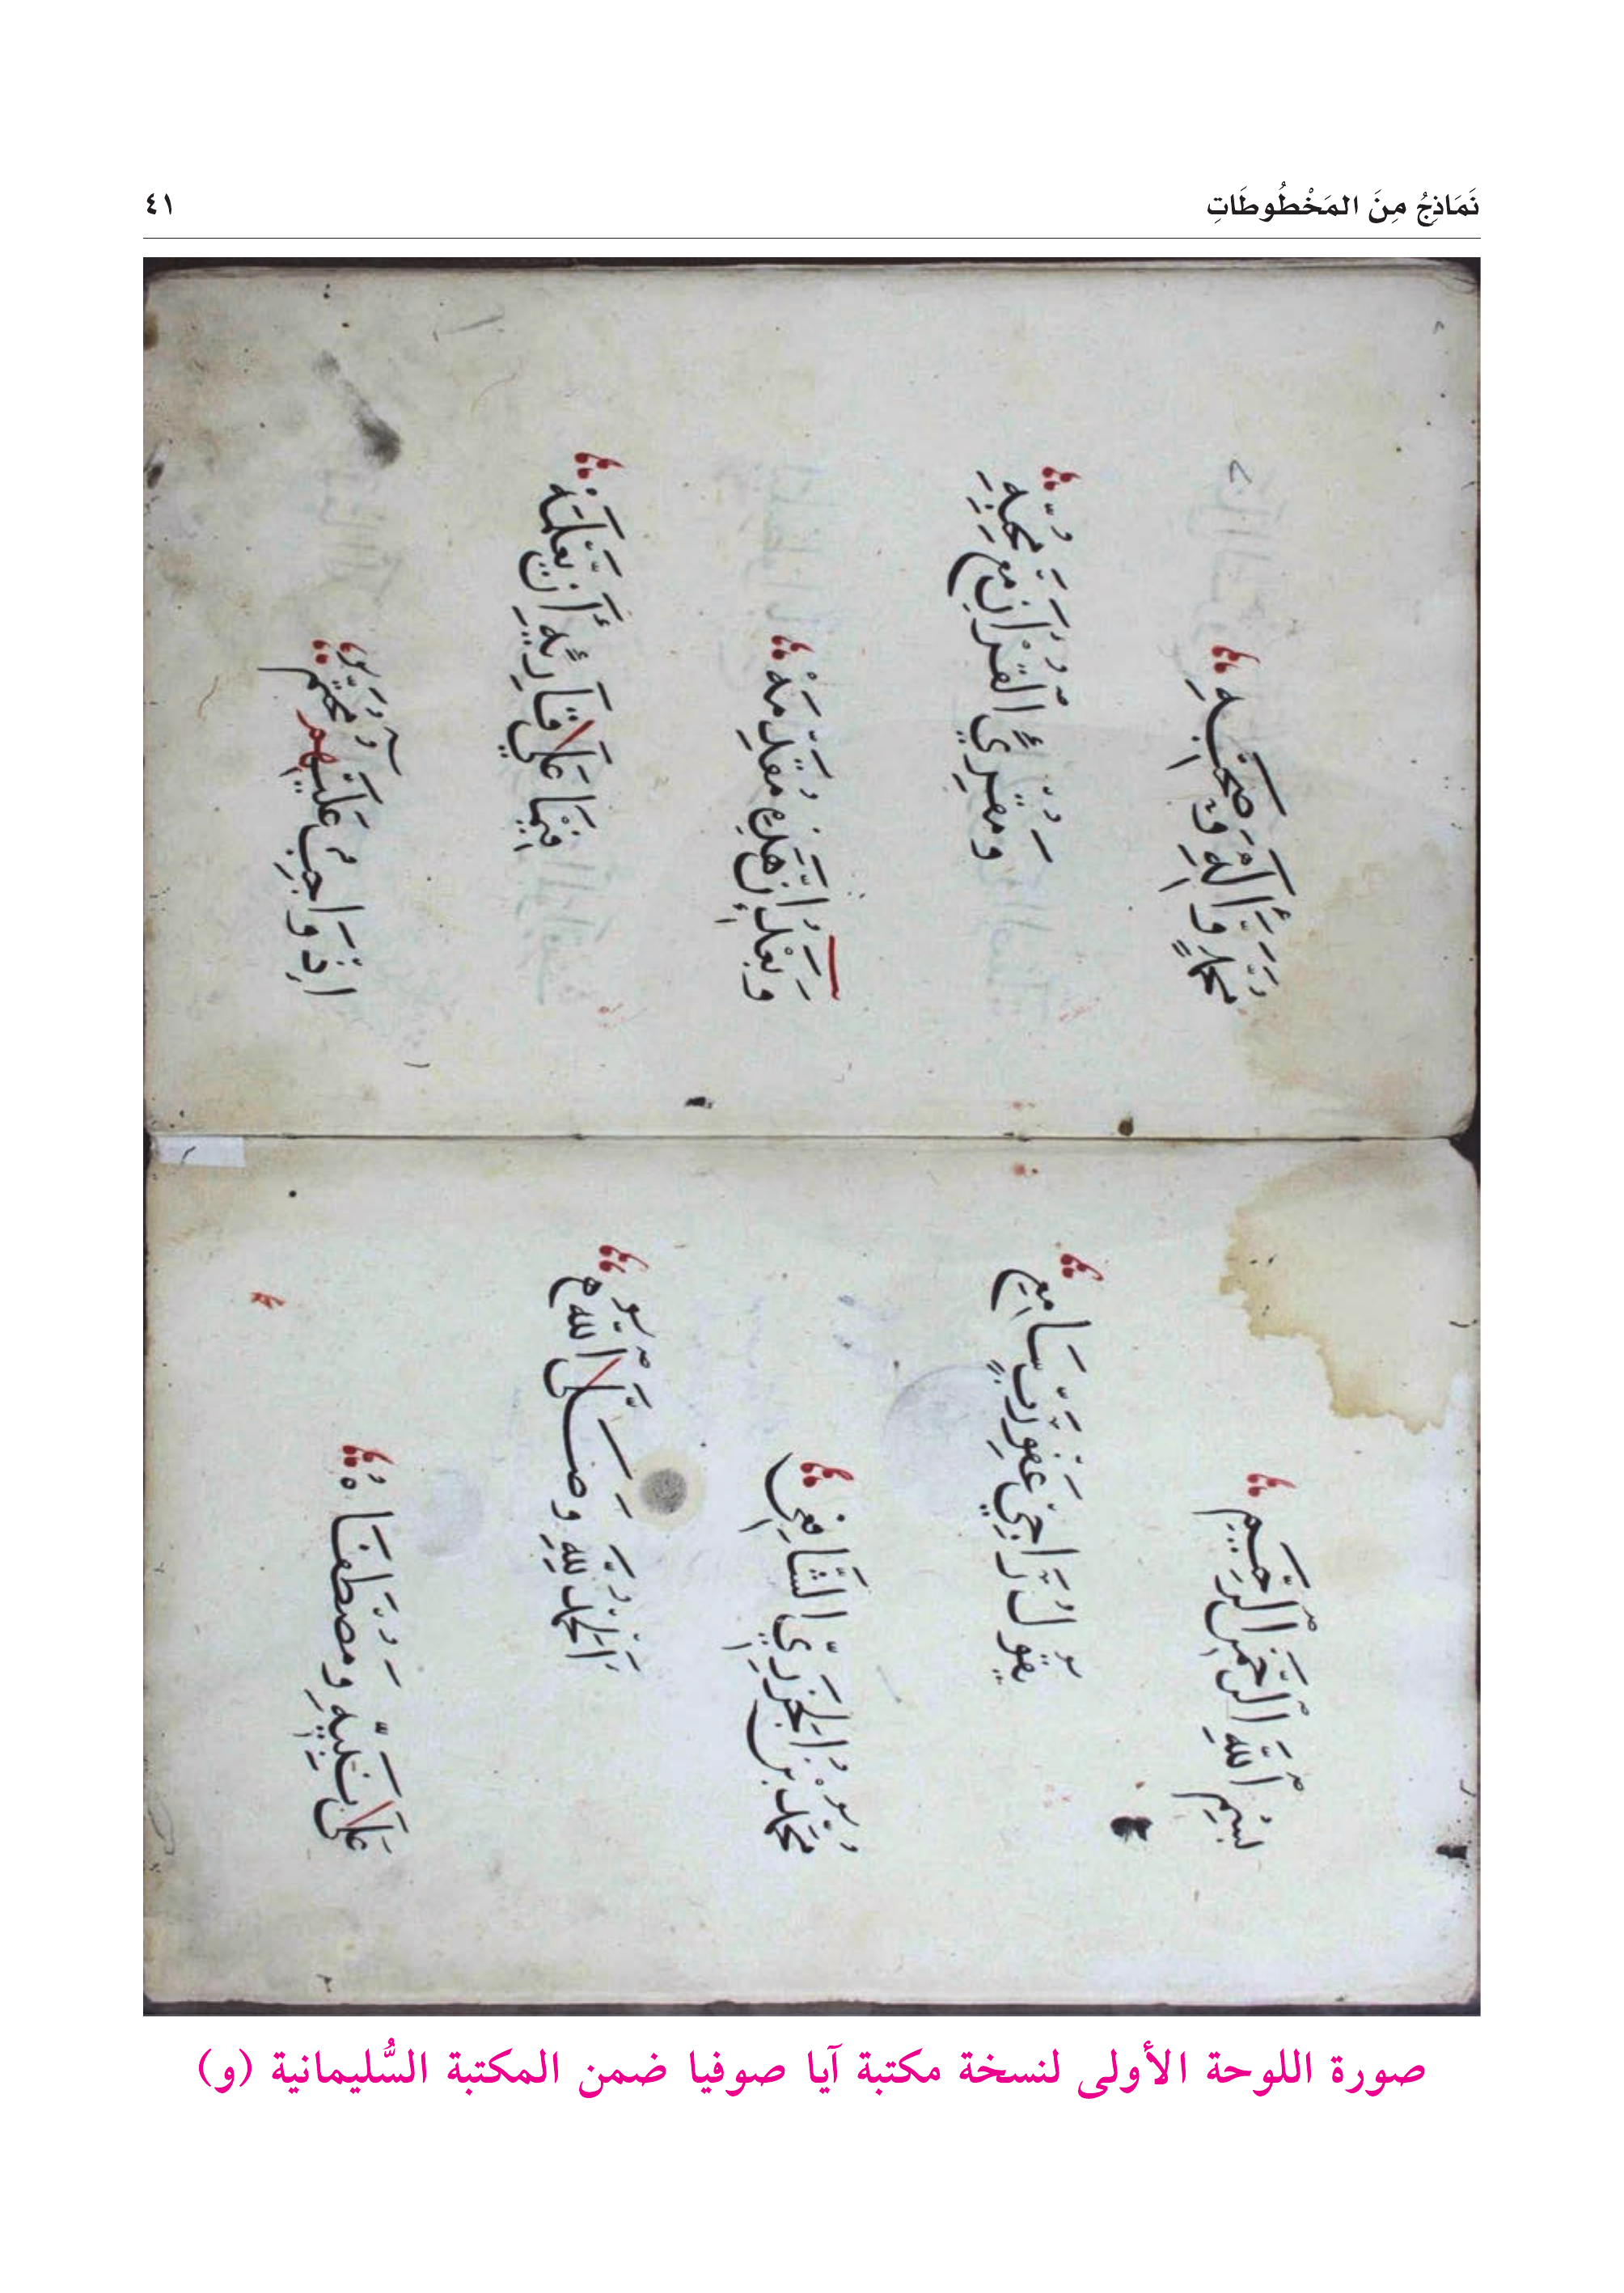 نَمَاذِجُ مِنَ المَخْطُوطَاتِ
٤١
بِسْمِ اللَّهِ الرَّحْمٰنِ الرَّحِيمِ
يَقُولُ رَاجِي عَفْوِ رَبٍّ سَامِعِ
مُحَمَّدُ بْنُ الْجَزَرِيِّ الشَّافِعِي
اَلْحَمْدُ لِلَّهِ وَصَلَّى اللَّهُ
عَلَى نَبِيِّهِ وَمُصْطَفَاهُ
مُحَمَّدٍ وَآلِهِ وَصَحْبِهِ
وَمُقْرِئِ الْقُرْآنِ مَعْ مُحِبِّهِ
وَبَعْدُ إِنَّ هَذِهِ مُقَدِّمَهْ
فِيمَا عَلَى قَارِئِهِ أَنْ يَعْلَمَهْ
اِذْ وَاجِبٌ عَلَيْهِمُ مُحَتَّمُ
صورة اللوحة الأولى لنسخة مكتبة آيا صوفيا ضمن المكتبة السُّليمانية (و)